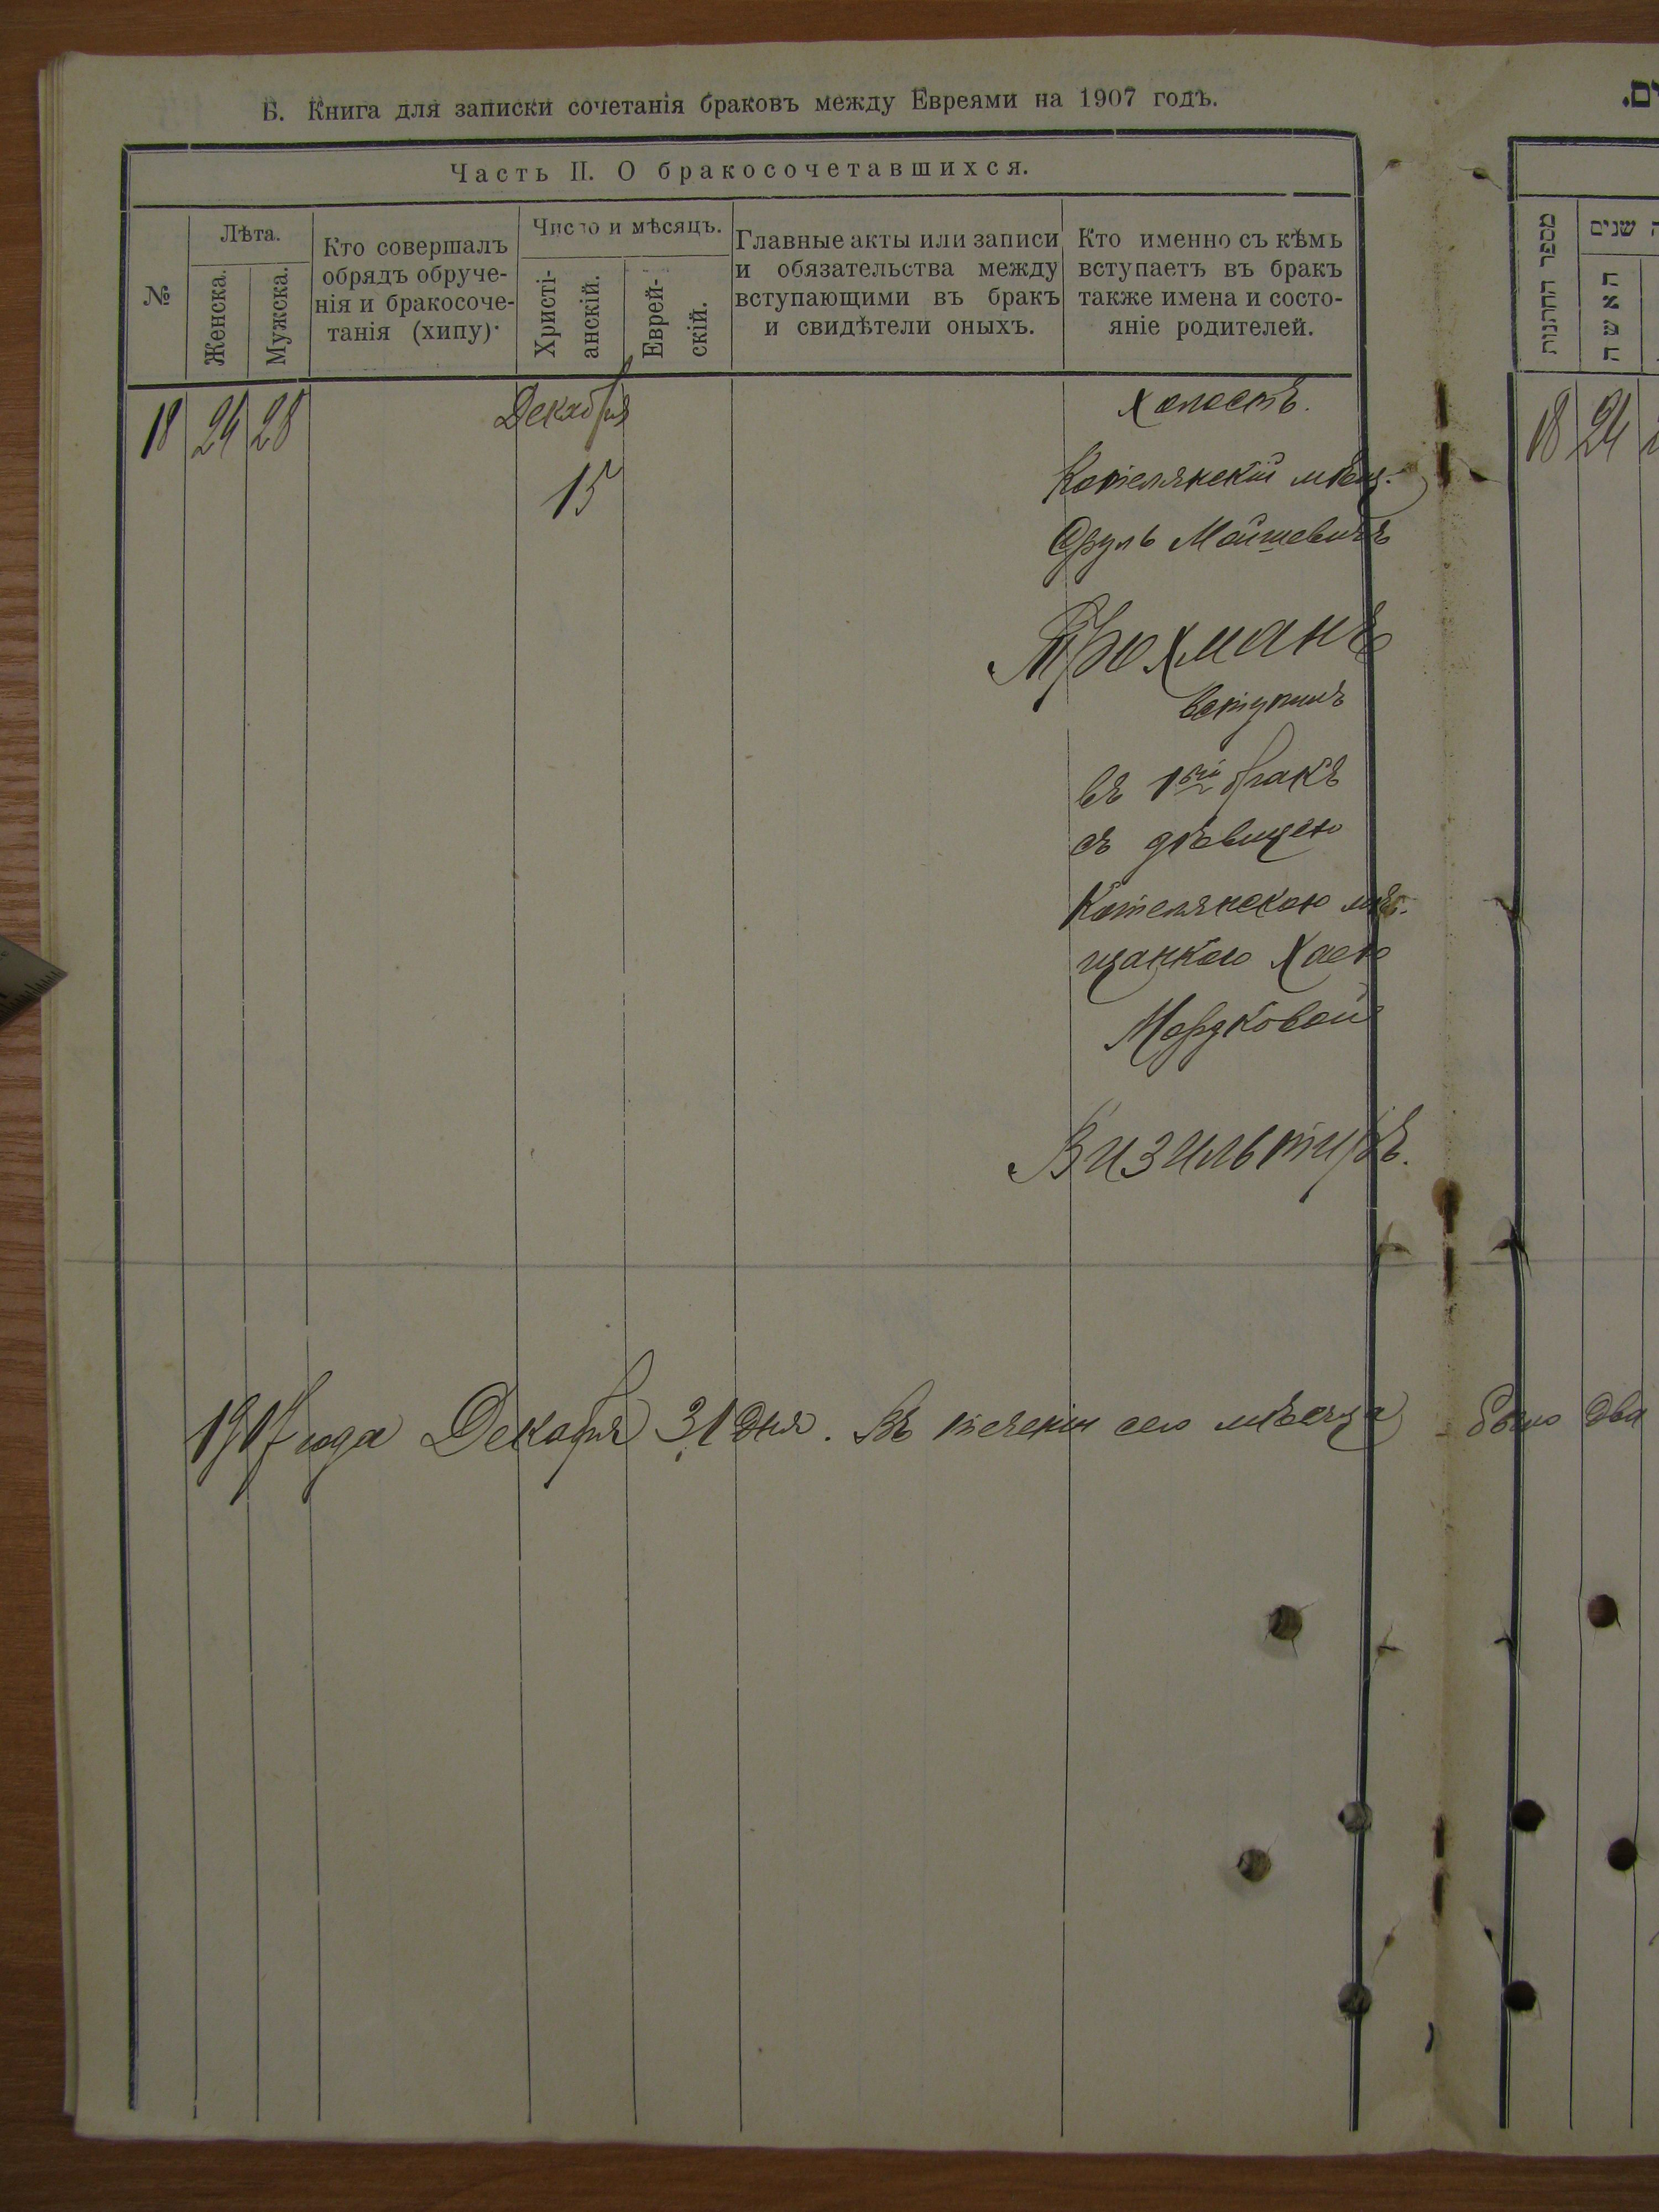 Б. Книга для записки сочетанія браковъ между Евреями на 1907 годъ.
Часть II. О бракосочетавшихся.
№
Лѣта.
Женска.
Мужска.
Кто совершалъ
обрядъ обруче-
нія и бракосоче-
танія (хипу).
Число и мѣсяцъ.
Христі-
анскій.
Еврей-
скій.
Главные акты или записи
и обязательства между
вступающими въ бракъ
и свидѣтели оныхъ.
Кто именно съ кѣмь
вступаетъ въ бракъ
также имена и состо-
яніе родителей.
18 24 28
Декабря
15
Холостъ.
Котелянскій мѣщ.
Сруль Мошевичъ
Трохманъ
вступилъ
въ 1ый бракъ
съ дѣвицею
Котелянскою мѣ-
щанкою Хаею
Мордковой
Визильтиръ.
1907 года Декабря 31 дня. Въ теченіи сего мѣсяца было два
מספר החתנות
שנים
האשה
18 24